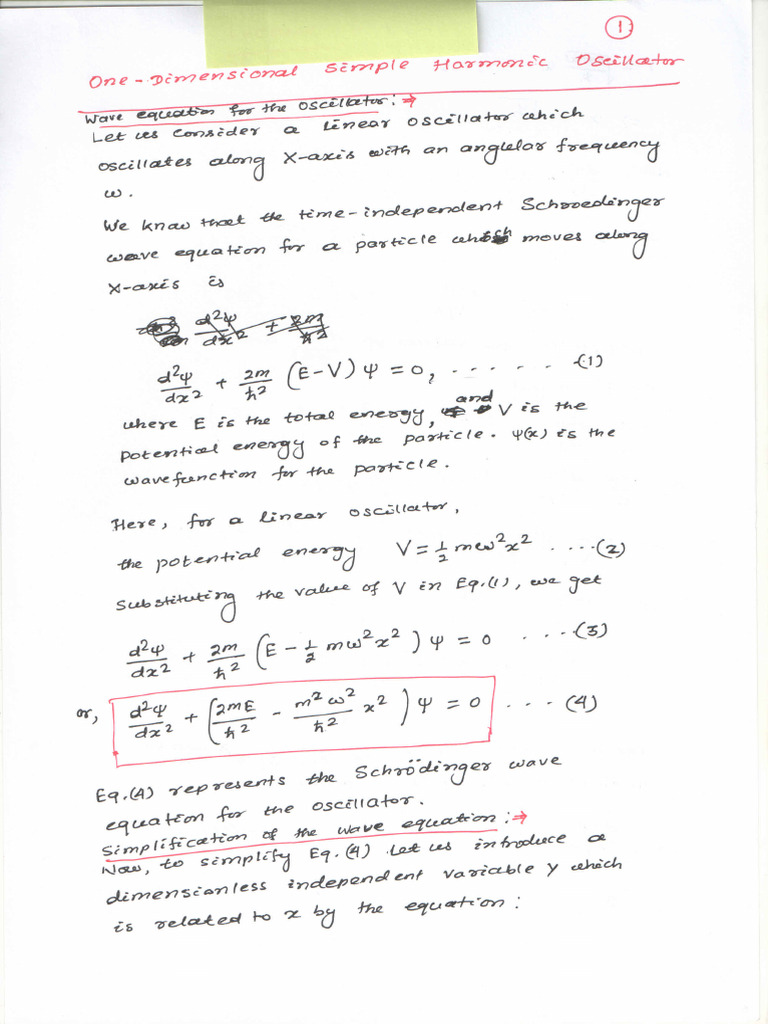 1
One-Dimensional Simple Harmonic Oscillator
Wave equation for the oscillator: ⇒
Let us consider a linear oscillator which
oscillates along X-axis with an anglular frequency
ω.
We know that the time-independent Schroedinger
wave equation for a particle which moves along
X-axis is
d²ψ/dx² + 2m/ħ²
d²ψ/dx² + 2m/ħ² (E-V) ψ = 0, ...... (1)
where E is the total energy, and V is the
potential energy of the particle. ψ(x) is the
wavefunction for the particle.
Here, for a linear oscillator,
the potential energy V = ½ mω²x² ....(2)
Substituting the value of V in Eq.(1), we get
d²ψ/dx² + 2m/ħ² (E - ½ mω²x²) ψ = 0 ....(3)
or, d²ψ/dx² + (2mE/ħ² - m²ω²/ħ² x²) ψ = 0 ... (4)
Eq.(4) represents the Schrödinger wave
equation for the oscillator.
Simplification of the wave equation: ⇒
Now, to simplify Eq.(4) Let us introduce a
dimensionless independent variable y which
is related to x by the equation: